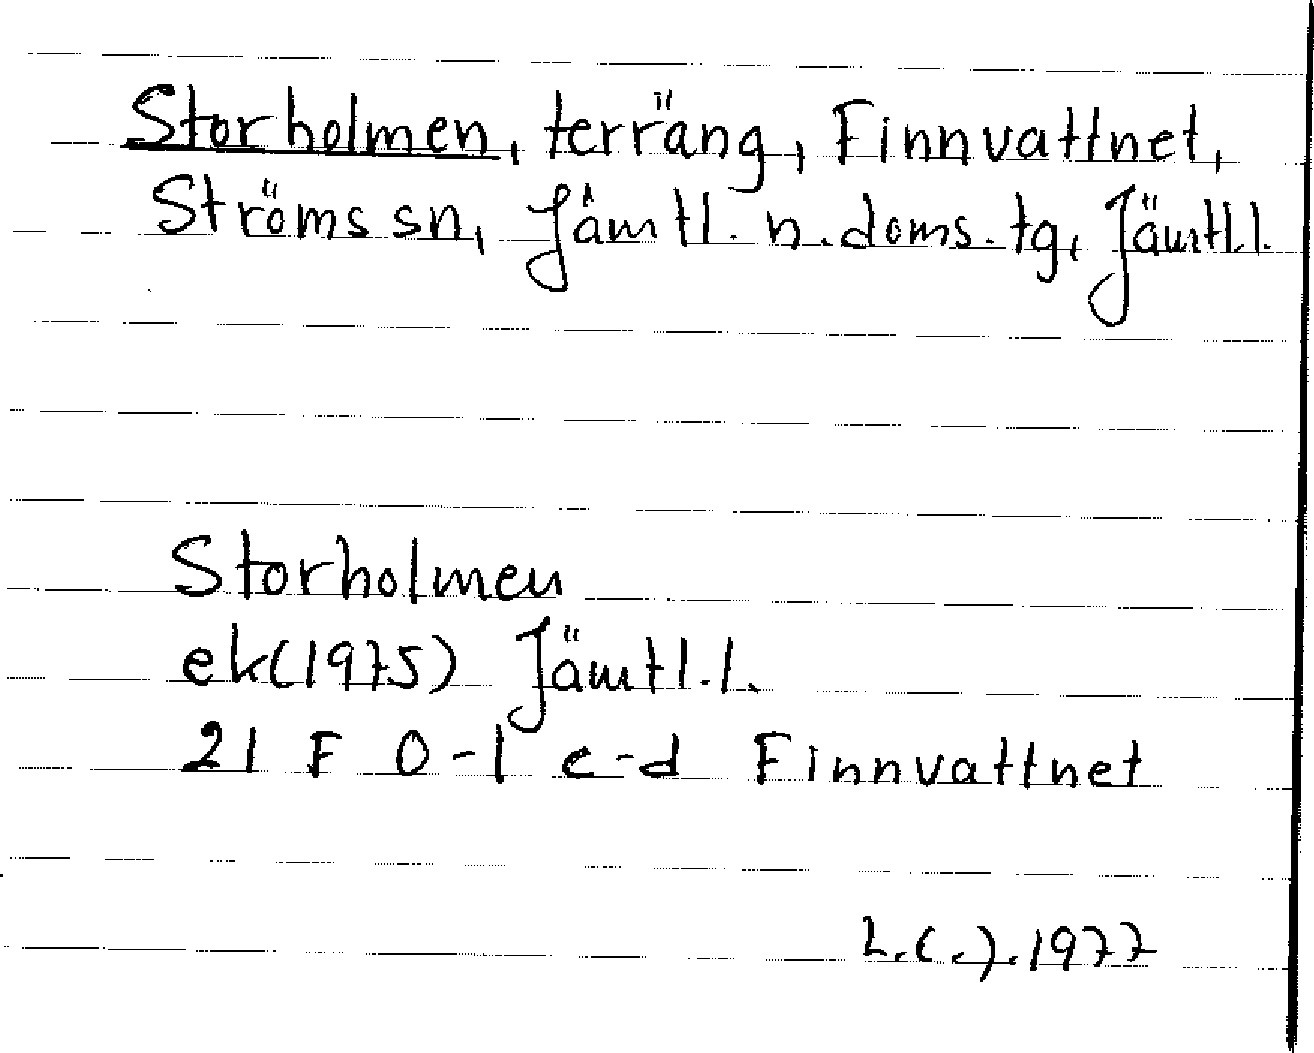 Storholmen, terräng, Finnvattnet,
Ströms sn, Jämtl. n. doms. tg, Jämtl.l.
Storholmen
ek(1975) Jämtl.l.
21 F 0-1 c-d Finnvattnet
1977